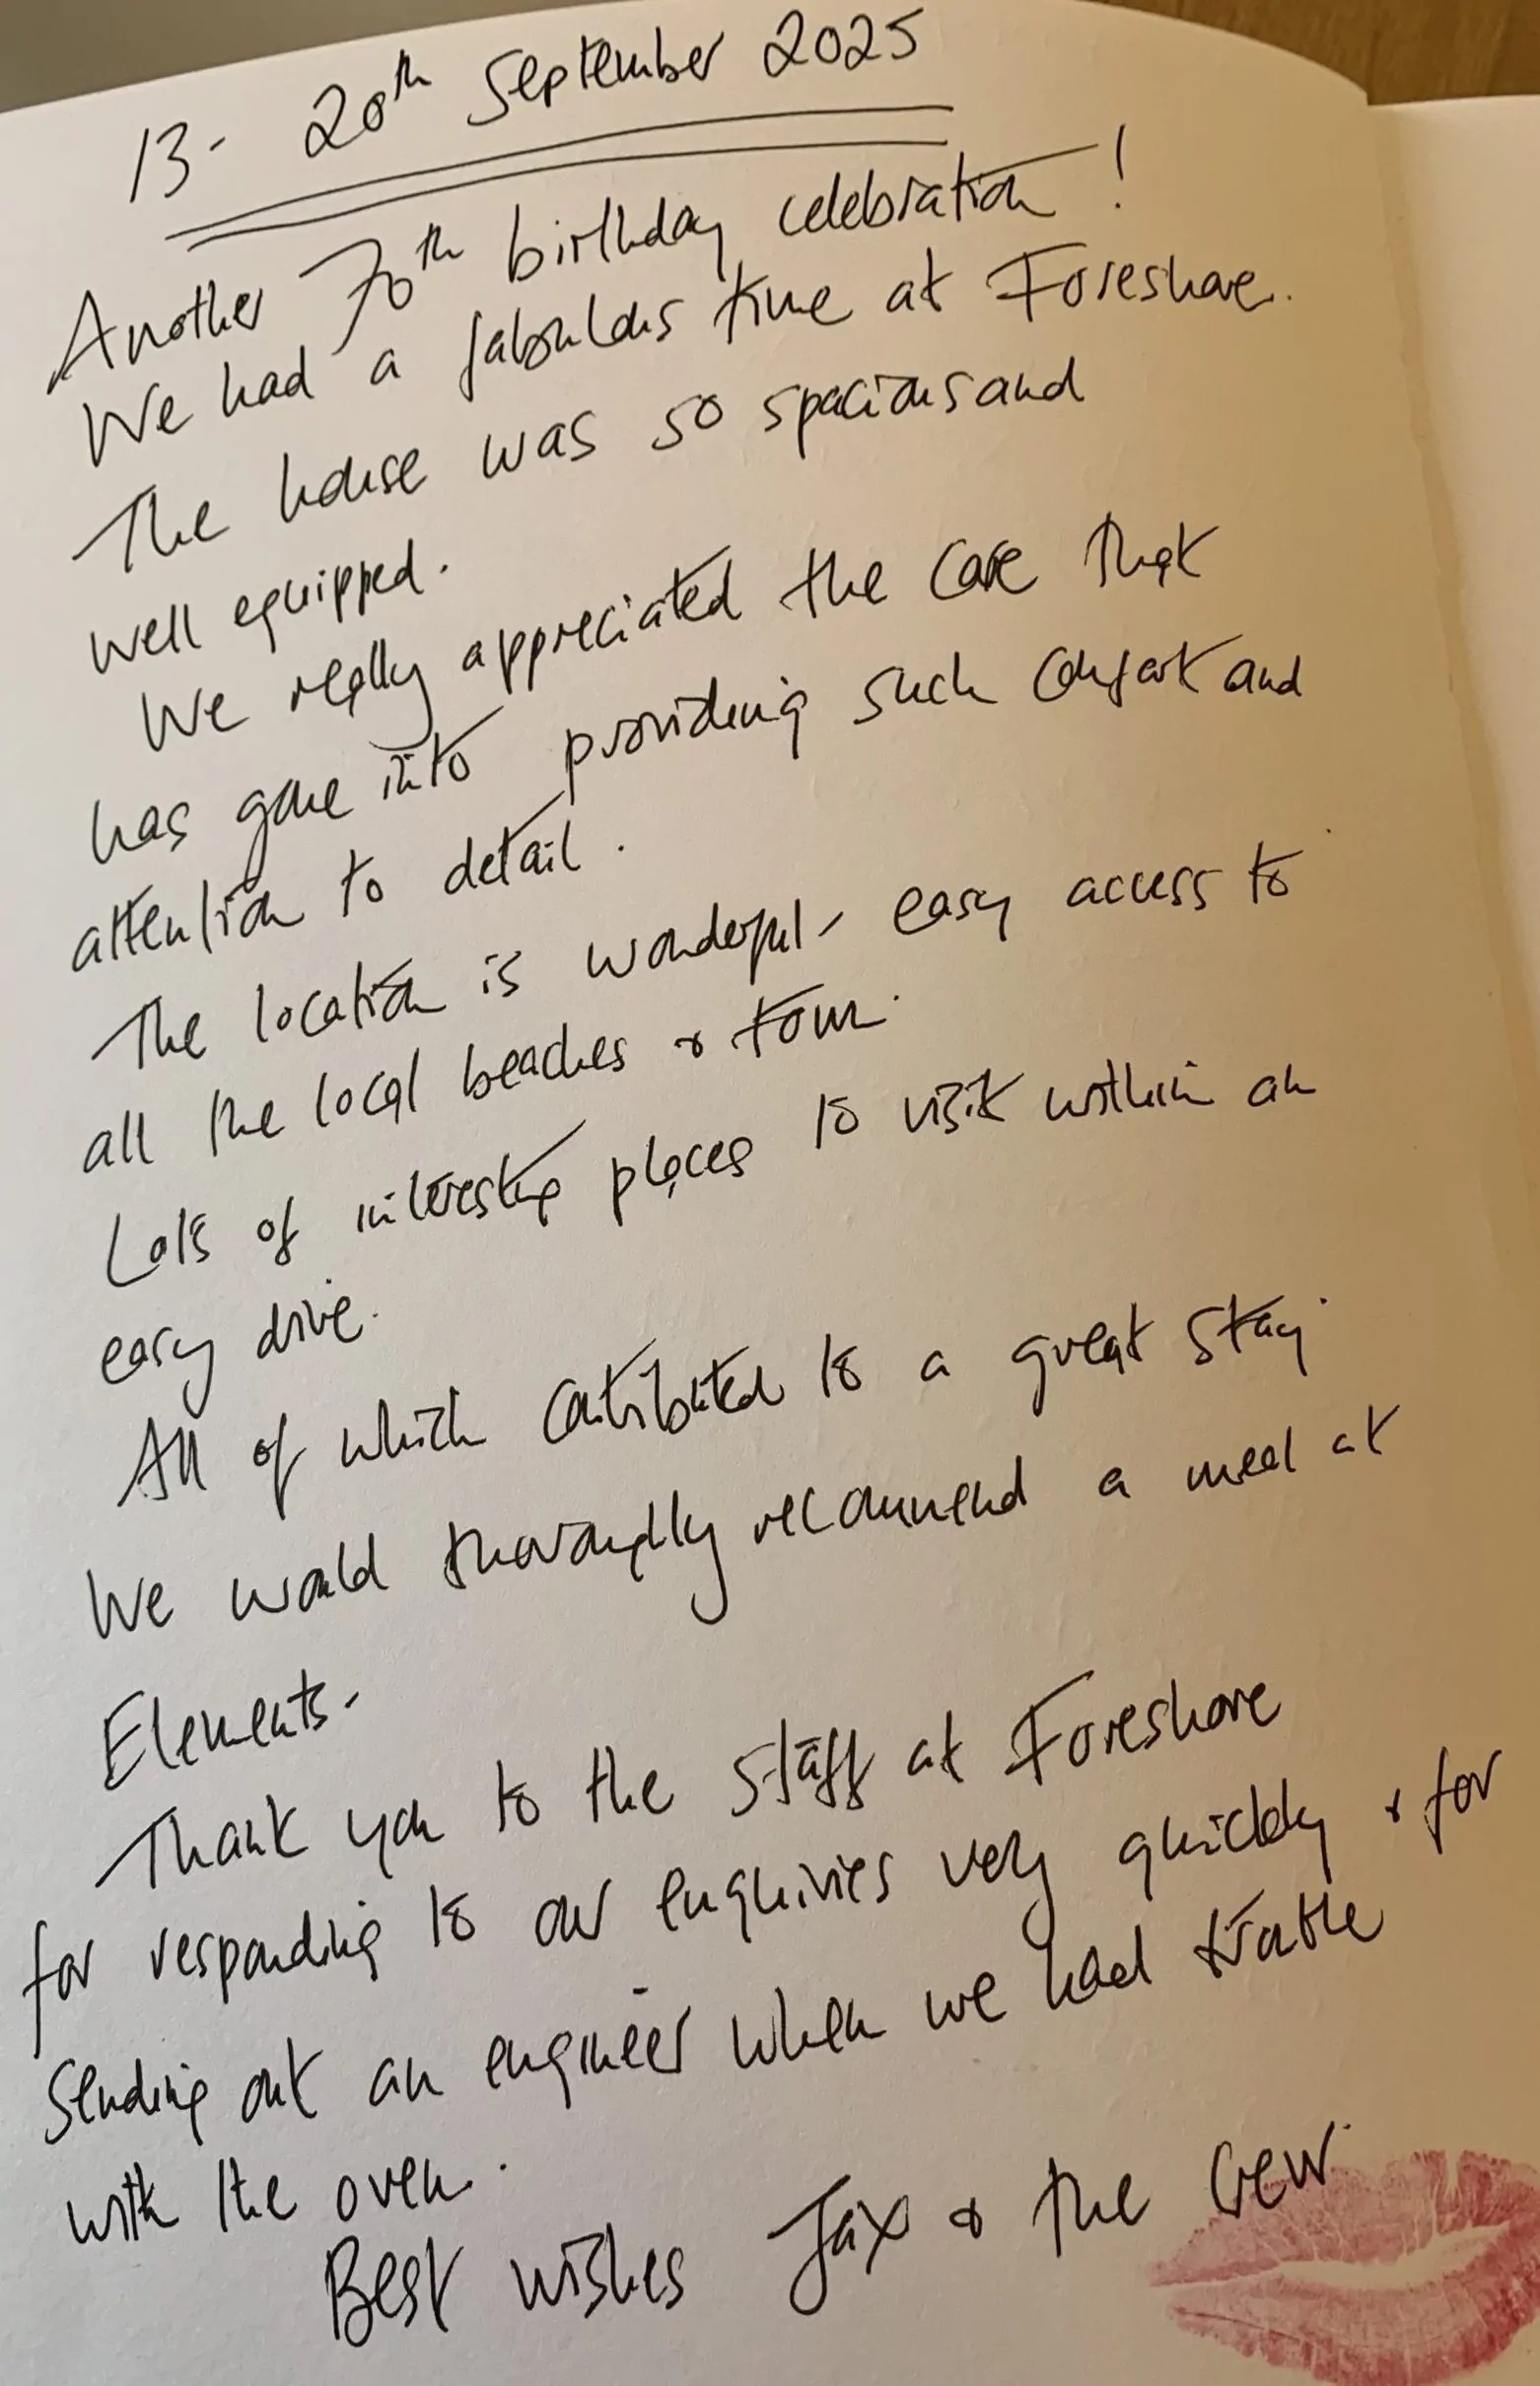 13 - 20th September 2025
Another 70th birthday celebration!
We had a fabulous time at Foreshore.
The house was so spacious and
well equipped.
We really appreciated the care that
has gone into providing such comfort and
attention to detail.
The location is wonderful - easy access to
all the local beaches & town.
Lots of interesting places to visit within an
easy drive.
All of which contributed to a great stay.
We would thoroughly recommend a meal at
Elements.
Thank you to the staff at Foreshore
for responding to our enquiries very quickly & for
sending out an engineer when we had trouble
with the oven.
Best wishes Jax & the Crew.